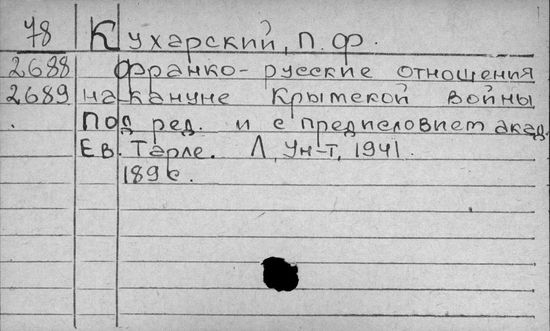 78 Кухарский, П. Ф.
2688 Франко-русские отношения
2689 накануне Крымской войны
Под ред. и с предисловием акад.
Ев. Тарле. Л, Ун-т, 1941.
189 с.